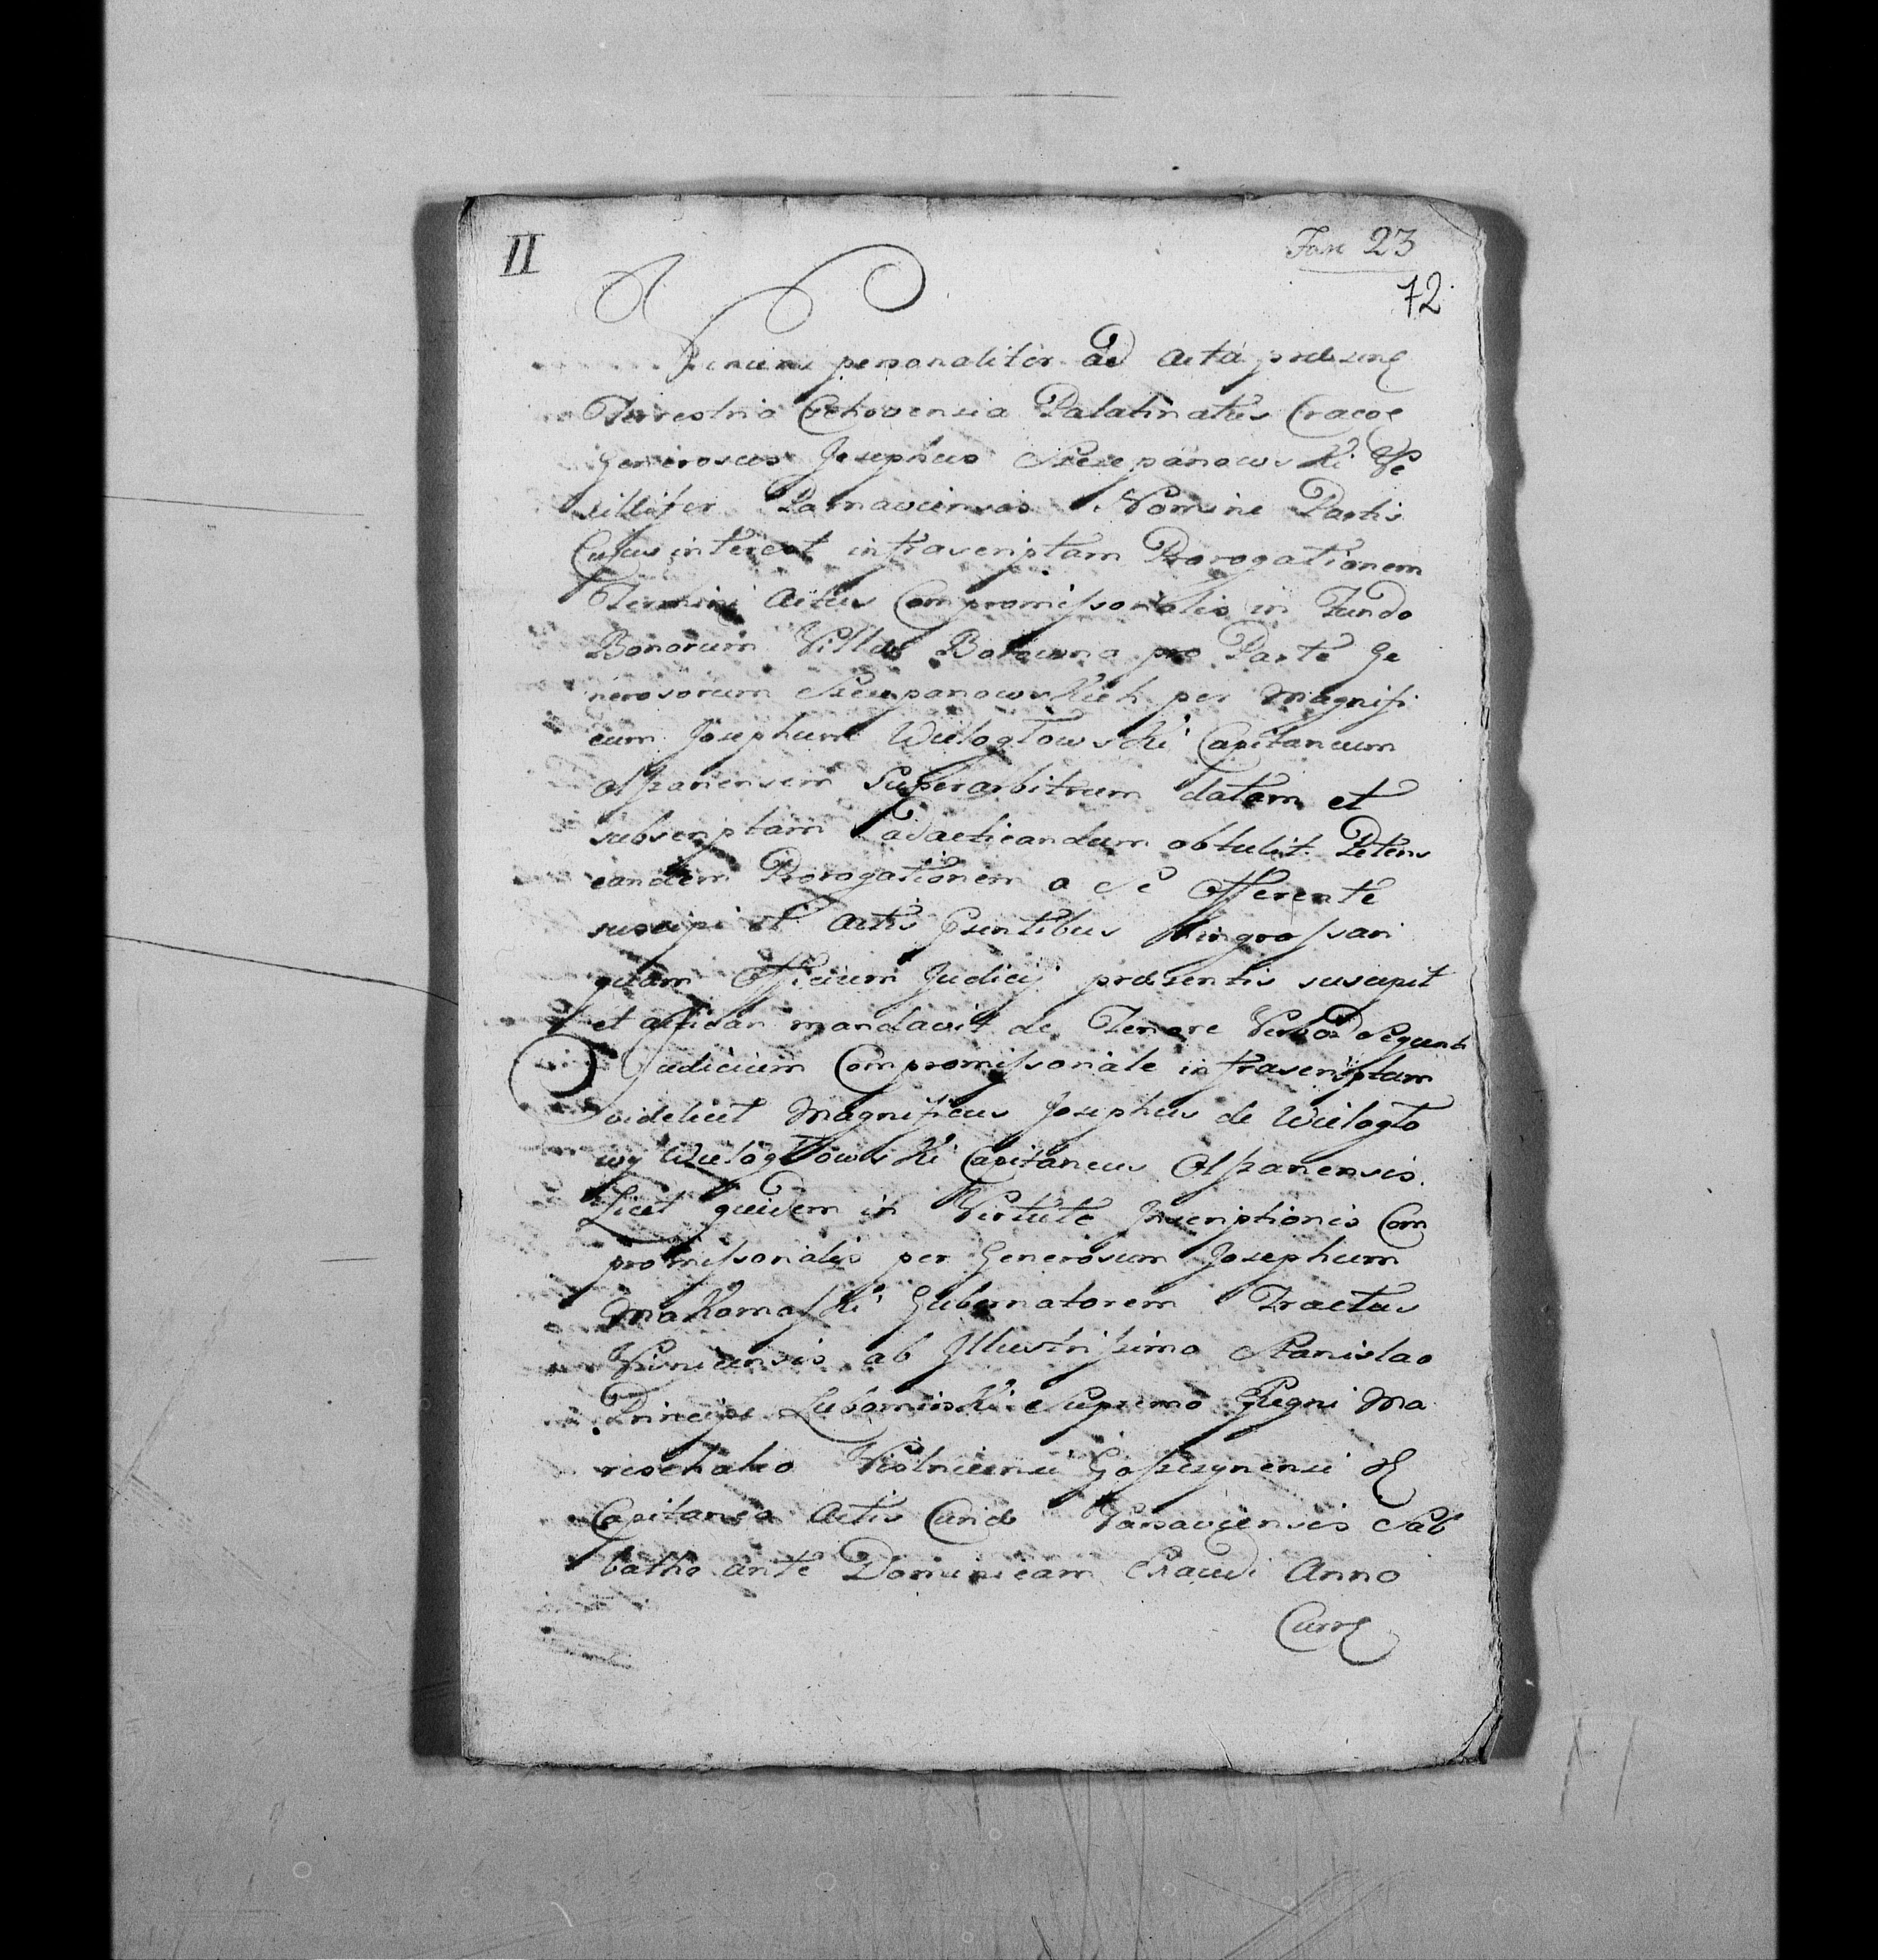 II
Fasc 23
72
Veniens personaliter ad Acta praesen
Terrestria Czchoviensia Palatinatus Craco
Generosus Josephus Szczepanowski Ve
xillifer Parnaviensis Nomine Partis
Cujus interest infrascriptam Prorogationem
Termini Actus Compromissorialis in Fundo
Bonorum Villae Borowna pro Parte Ge
nerosorum Szczepanowskich per Magnifi
cum Josephum Wielogłowski Capitaneum
Olszanensem Superarbitrum datam et
subscriptam ad acticandum obtulit. Petens
eandem Prorogationem a Se Offerente
suscipi et Actis Psentibus ingrossari
quam Officium Judicij praesentis suscepit
et acticari mandavit de Tenore Verbor Sequenti
Judicium Compromissoriale infrascriptum
videlicet Magnificus Josephus de Wielogło
wy Wielogłowski Capitaneus Olszanensis.
Licet quidem in Virtute Inscriptionis Com
promissorialis per Generosum Josephum
Makomaski Gubernatorem Tractus
Visnicensis ab Illustrissimo Stanislao
Principe Lubomirski Supremo Regni Ma
reschalco Wislnicensi Gossczynensi
Capitaneo Actis Cancl Varsaviensis Sab
batho ante Dominicam Exaudi Anno
Curr